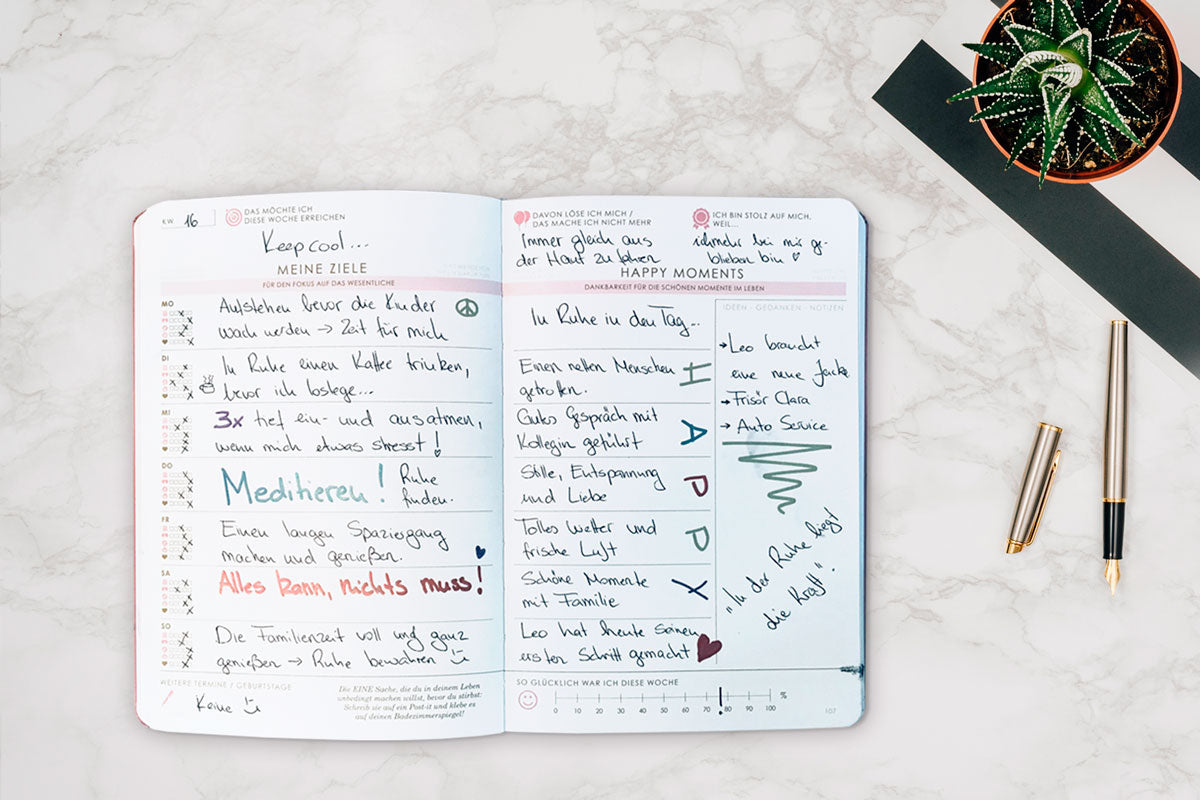 KW 16
DAS MÖCHTE ICH
DIESE WOCHE ERREICHEN
Keep cool...
MEINE ZIELE
FÜR DEN FOKUS AUF DAS WESENTLICHE
MO
Aufstehen bevor die Kinder
wach werden → Zeit für mich
DI
In Ruhe einen Kaffee trinken,
bevor ich loslege...
MI
3x tief ein- und ausatmen,
wenn mich etwas stresst!
DO
Meditieren! Ruhe
finden.
FR
Einen langen Spaziergang
machen und genießen.
SA
Alles kann, nichts muss!
SO
Die Familienzeit voll und ganz
genießen → Ruhe bewahren
WEITERE TERMINE / GEBURTSTAGE
Keine
Die EINE Sache, die du in deinem Leben
unbedingt machen willst, bevor du stirbst:
Schreib sie auf ein Post-it und klebe es
auf deinen Badezimmerspiegel!
DAVON LÖSE ICH MICH /
DAS MACHE ICH NICHT MEHR
Immer gleich aus
der Haut zu fahren
ICH BIN STOLZ AUF MICH,
WEIL...
ich mehr bei mir ge-
blieben bin ♡
HAPPY MOMENTS
DANKBARKEIT FÜR DIE SCHÖNEN MOMENTE IM LEBEN
In Ruhe in den Tag...
Einen netten Menschen
getroffen.
H
Gutes Gespräch mit
Kollegin geführt
A
Stille, Entspannung
und Liebe
P
Tolles Wetter und
frische Luft
P
Schöne Momente
mit Familie
Y
Leo hat heute seinen
ersten Schritt gemacht
IDEEN - GEDANKEN - NOTIZEN
→ Leo braucht
eine neue Jacke
→ Frisör Clara
→ Auto Service
„In der Ruhe liegt
die Kraft".
SO GLÜCKLICH WAR ICH DIESE WOCHE
0 10 20 30 40 50 60 70 80 90 100 %
107